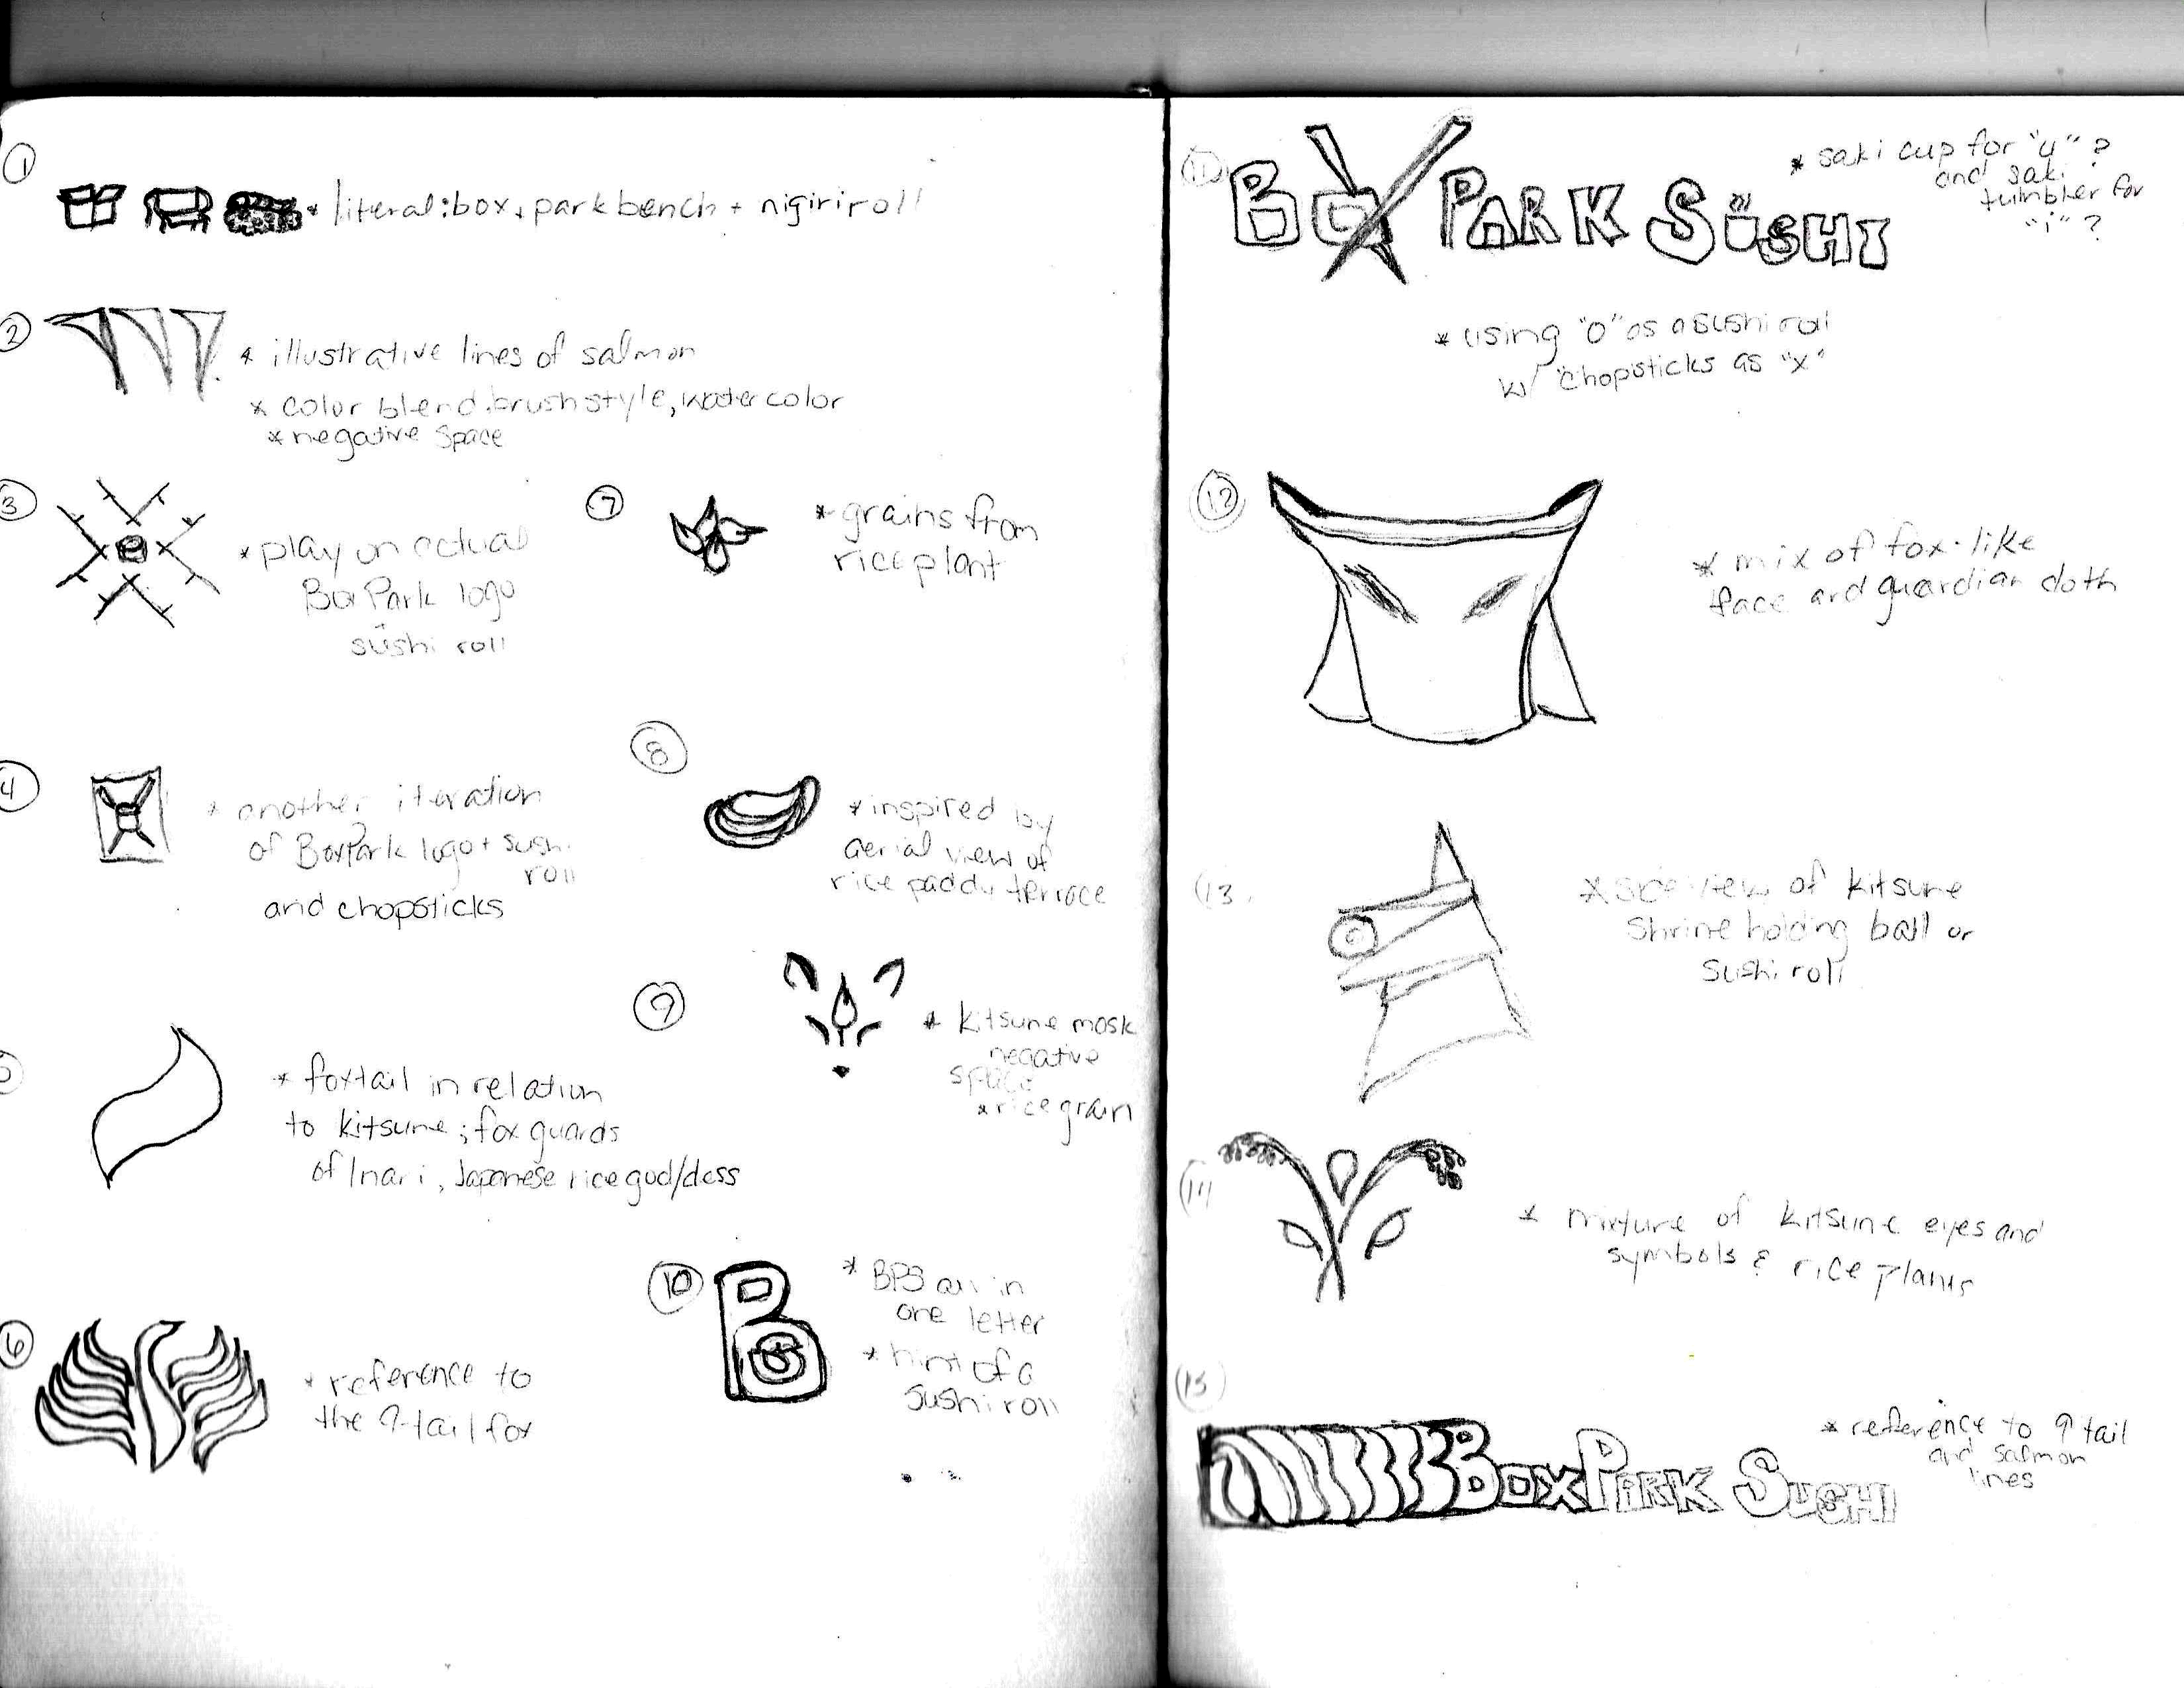 1
* literal: box, park bench + nigiri roll
2
* illustrative lines of salmon
* color blend, brush style, water color
* negative space
3
* play on actual
BoxPark logo
sushi roll
4
* another iteration
of BoxPark logo + sushi
roll
and chopsticks
* foxtail in relation
to kitsune; fox guards
of Inari, Japanese rice god/dess
6
* reference to
the 9-tail fox
7
* grains from
rice plant
8
* inspired by
aerial view of
rice paddy terrace
9
* kitsune mask
negative
space
* rice grain
10
* BPS all in
one letter
* hint of a
sushi roll
11
BOX PARK SUSHI
* saki cup for "u"?
and saki
tumbler for
"i"?
* using "O" as a sushi roll
w/ chopsticks as "x"
12
* mix of fox-like
face and guardian cloth
13
* side view of kitsune
shrine holding ball or
sushi roll
14
* mixture of kitsune eyes and
symbols & rice plants
15
BOXPARK SUSHI
* reference to 9 tail
and salmon
lines